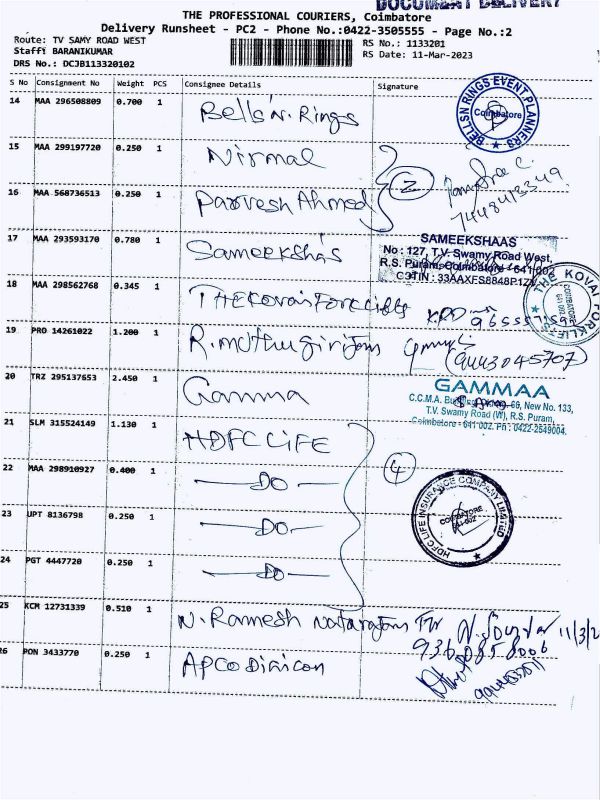 DOCUMENT DELIVERY
THE PROFESSIONAL COURIERS, Coimbatore
Delivery Runsheet - PC2 - Phone No.:0422-3505555 - Page No.:2
Route: TV SAMY ROAD WEST
RS No.: 1133201
Staff: BARANIKUMAR
RS Date: 11-Mar-2023
DRS No.: DCJB113320102
S No Consignment No Weight PCS Consignee Details Signature
14 MAA 296508809 0.700 1 Bells'N. Rings
BELLS N RINGS EVENT PLANNERS Coimbatore
15 MAA 299197720 0.250 1 Nirmal
16 MAA 568736513 0.250 1 Parvesh Ahmed
2
7448413349
17 MAA 293593170 0.780 1 Sameekshas
SAMEEKSHAAS
No : 127, T.V. Swamy Road West,
R.S. Puram, Coimbatore - 641 002
18 MAA 298562768 0.345 1 THE Kovai Forklifts
THE KOVAI FORKLIFTS COIMBATORE 641 002
19 PRO 14261022 1.200 1 R. muthu girijam
(9443045707)
20 TRZ 295137653 2.450 1 Gamma
GAMMAA
C.C.M.A. New No. 133,
T.V. Swamy Road (W), R.S. Puram,
Coimbatore - 641 002. Ph : 0422-2549004.
21 SLM 315524149 1.130 1 HDFC LIFE
22 MAA 298910927 0.400 1 DO
4
23 UPT 8136798 0.250 1 DO
HDFC LIFE INSURANCE COMPANY LIMITED COIMBATORE 641-002
24 PGT 4447720 0.250 1 DO
25 KCM 12731339 0.510 1 N. Ramesh Natarajan
11/3/2
26 PON 3433770 0.250 1 APCO Digicon